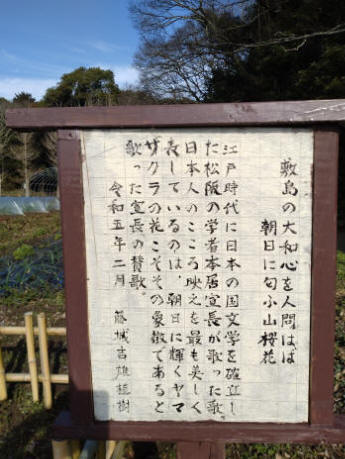 敷島の大和心を人問はば
朝日に匂ふ山桜花
江戸時代に日本の国文学を確立し
た松阪の学者本居宣長が歌った歌。
日本人のこころ映えを最も美しく
表しているのは、朝日に輝くヤマ
ザクラの花こそその象徴であると
歌った宣長の賛歌。
令和五年二月 藤城吉雄植樹